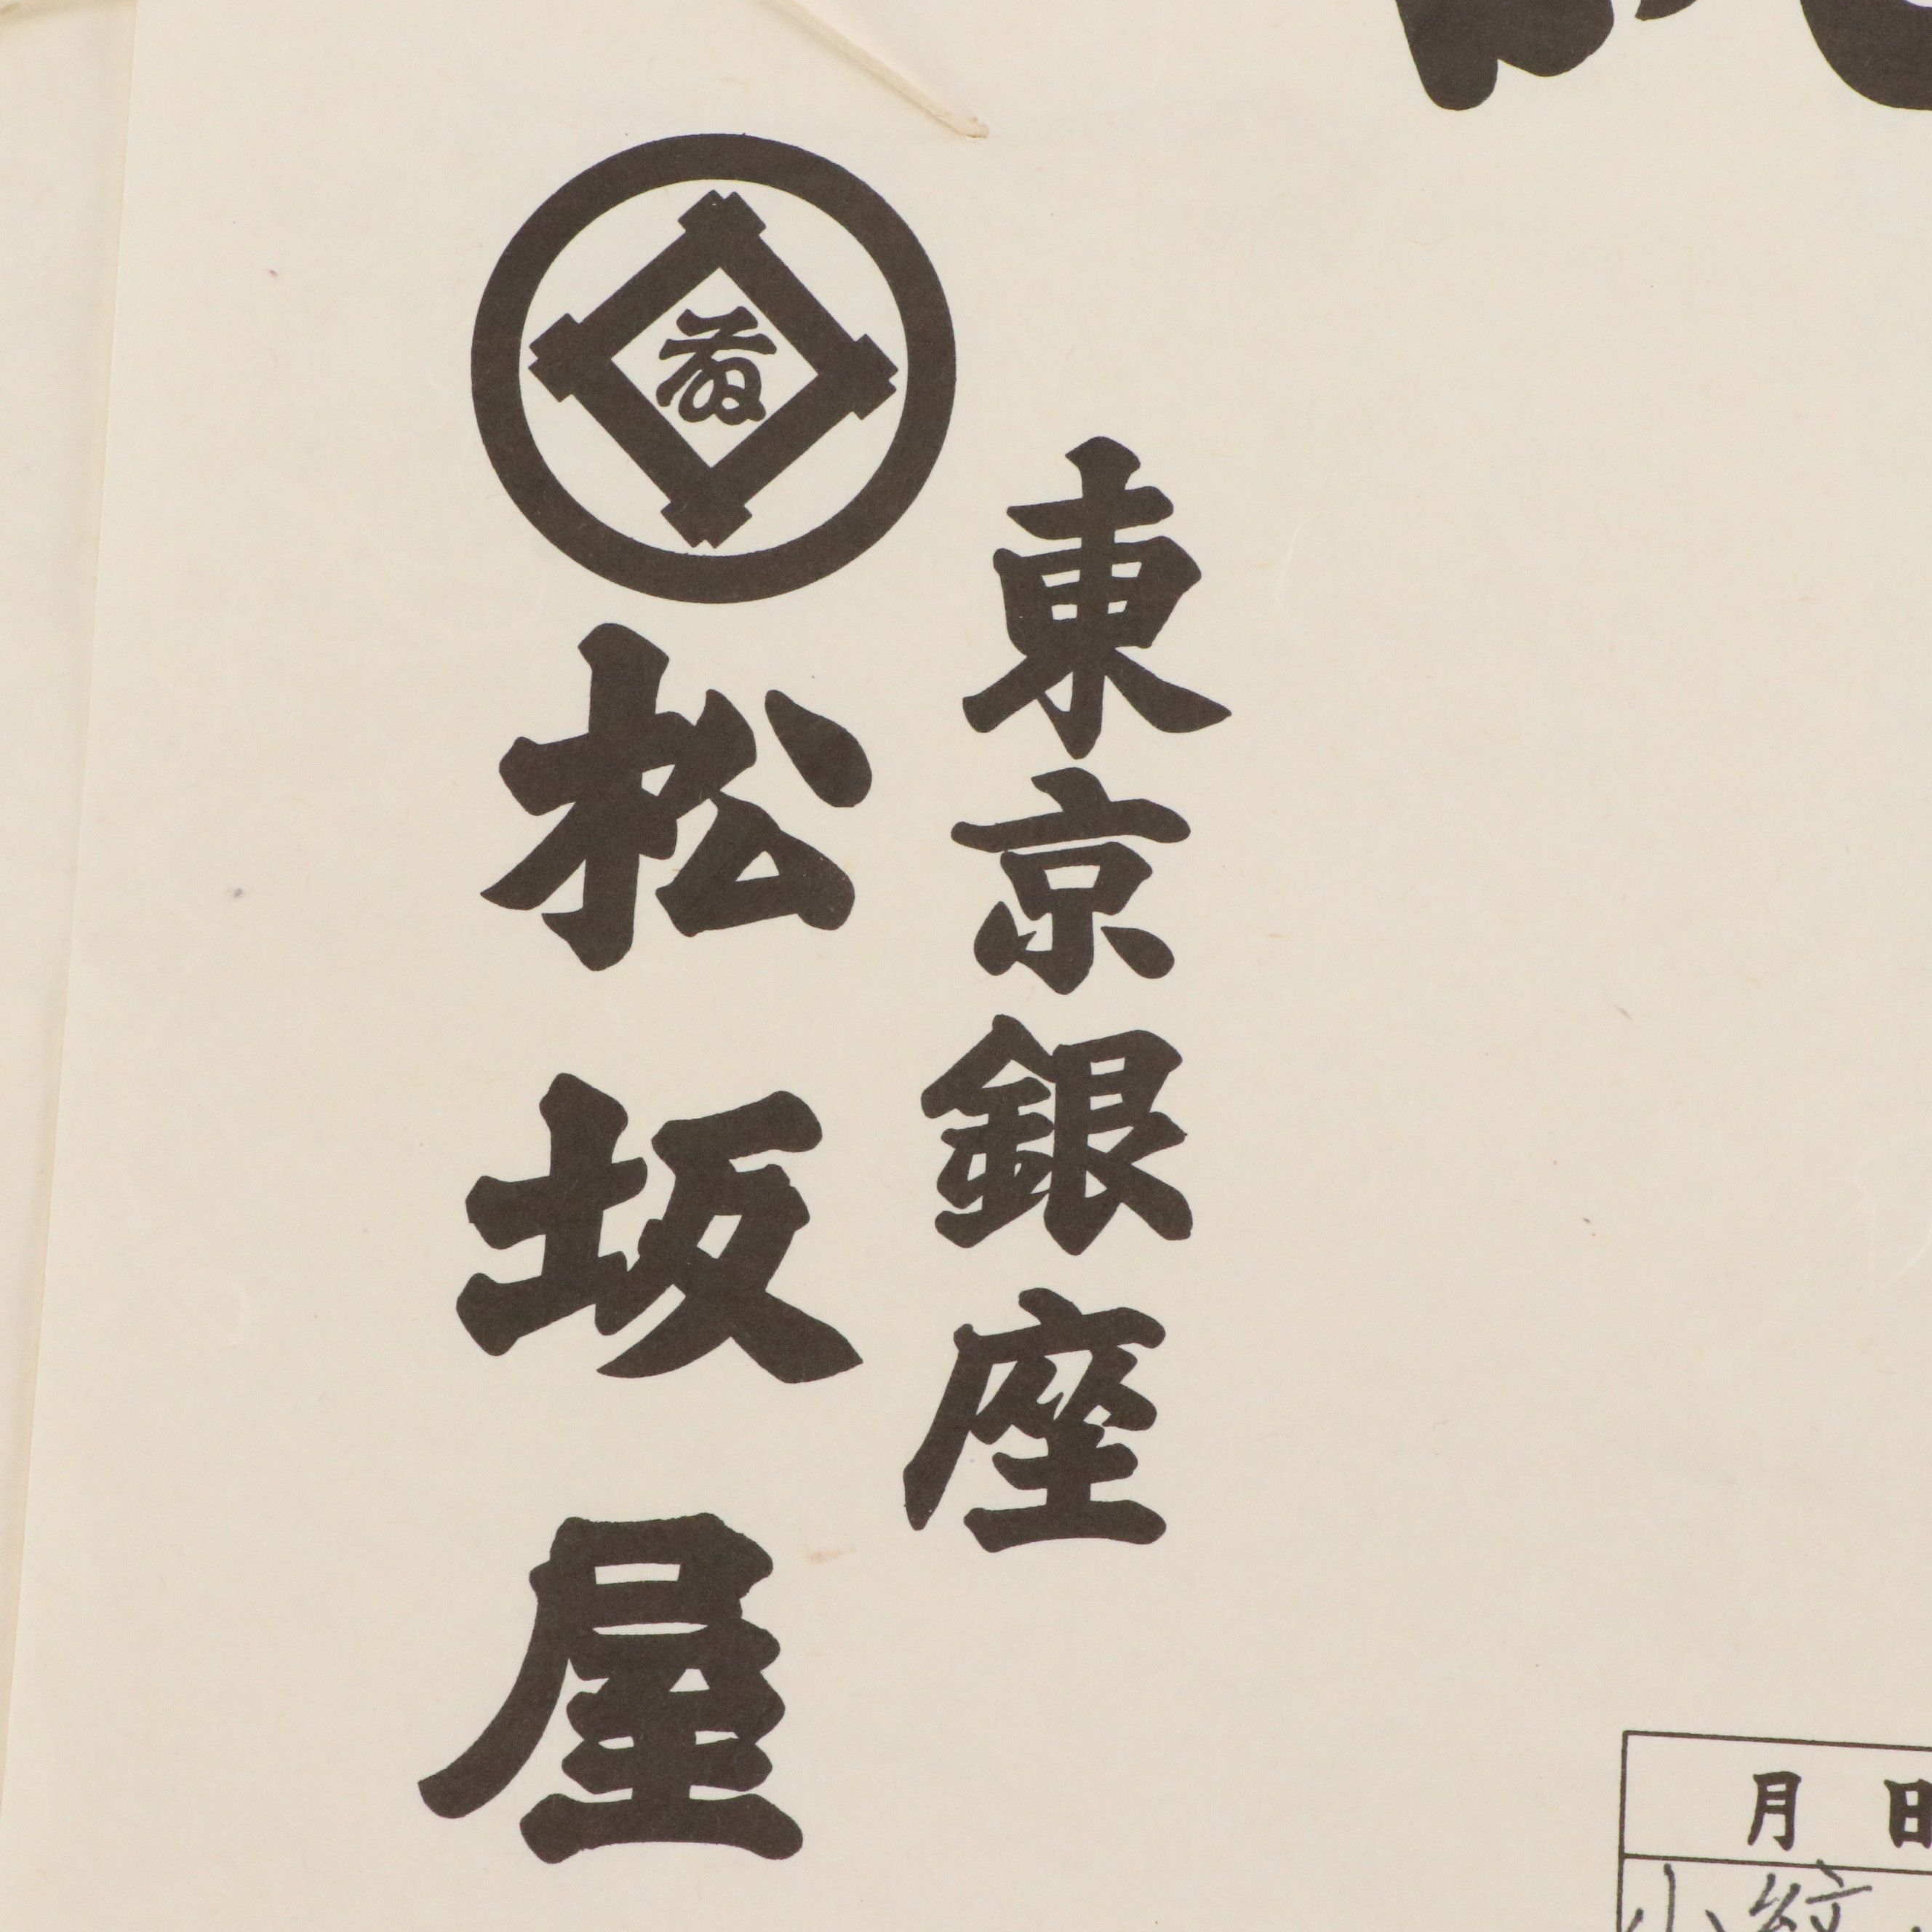 東京銀座
松坂屋
月日
小紋